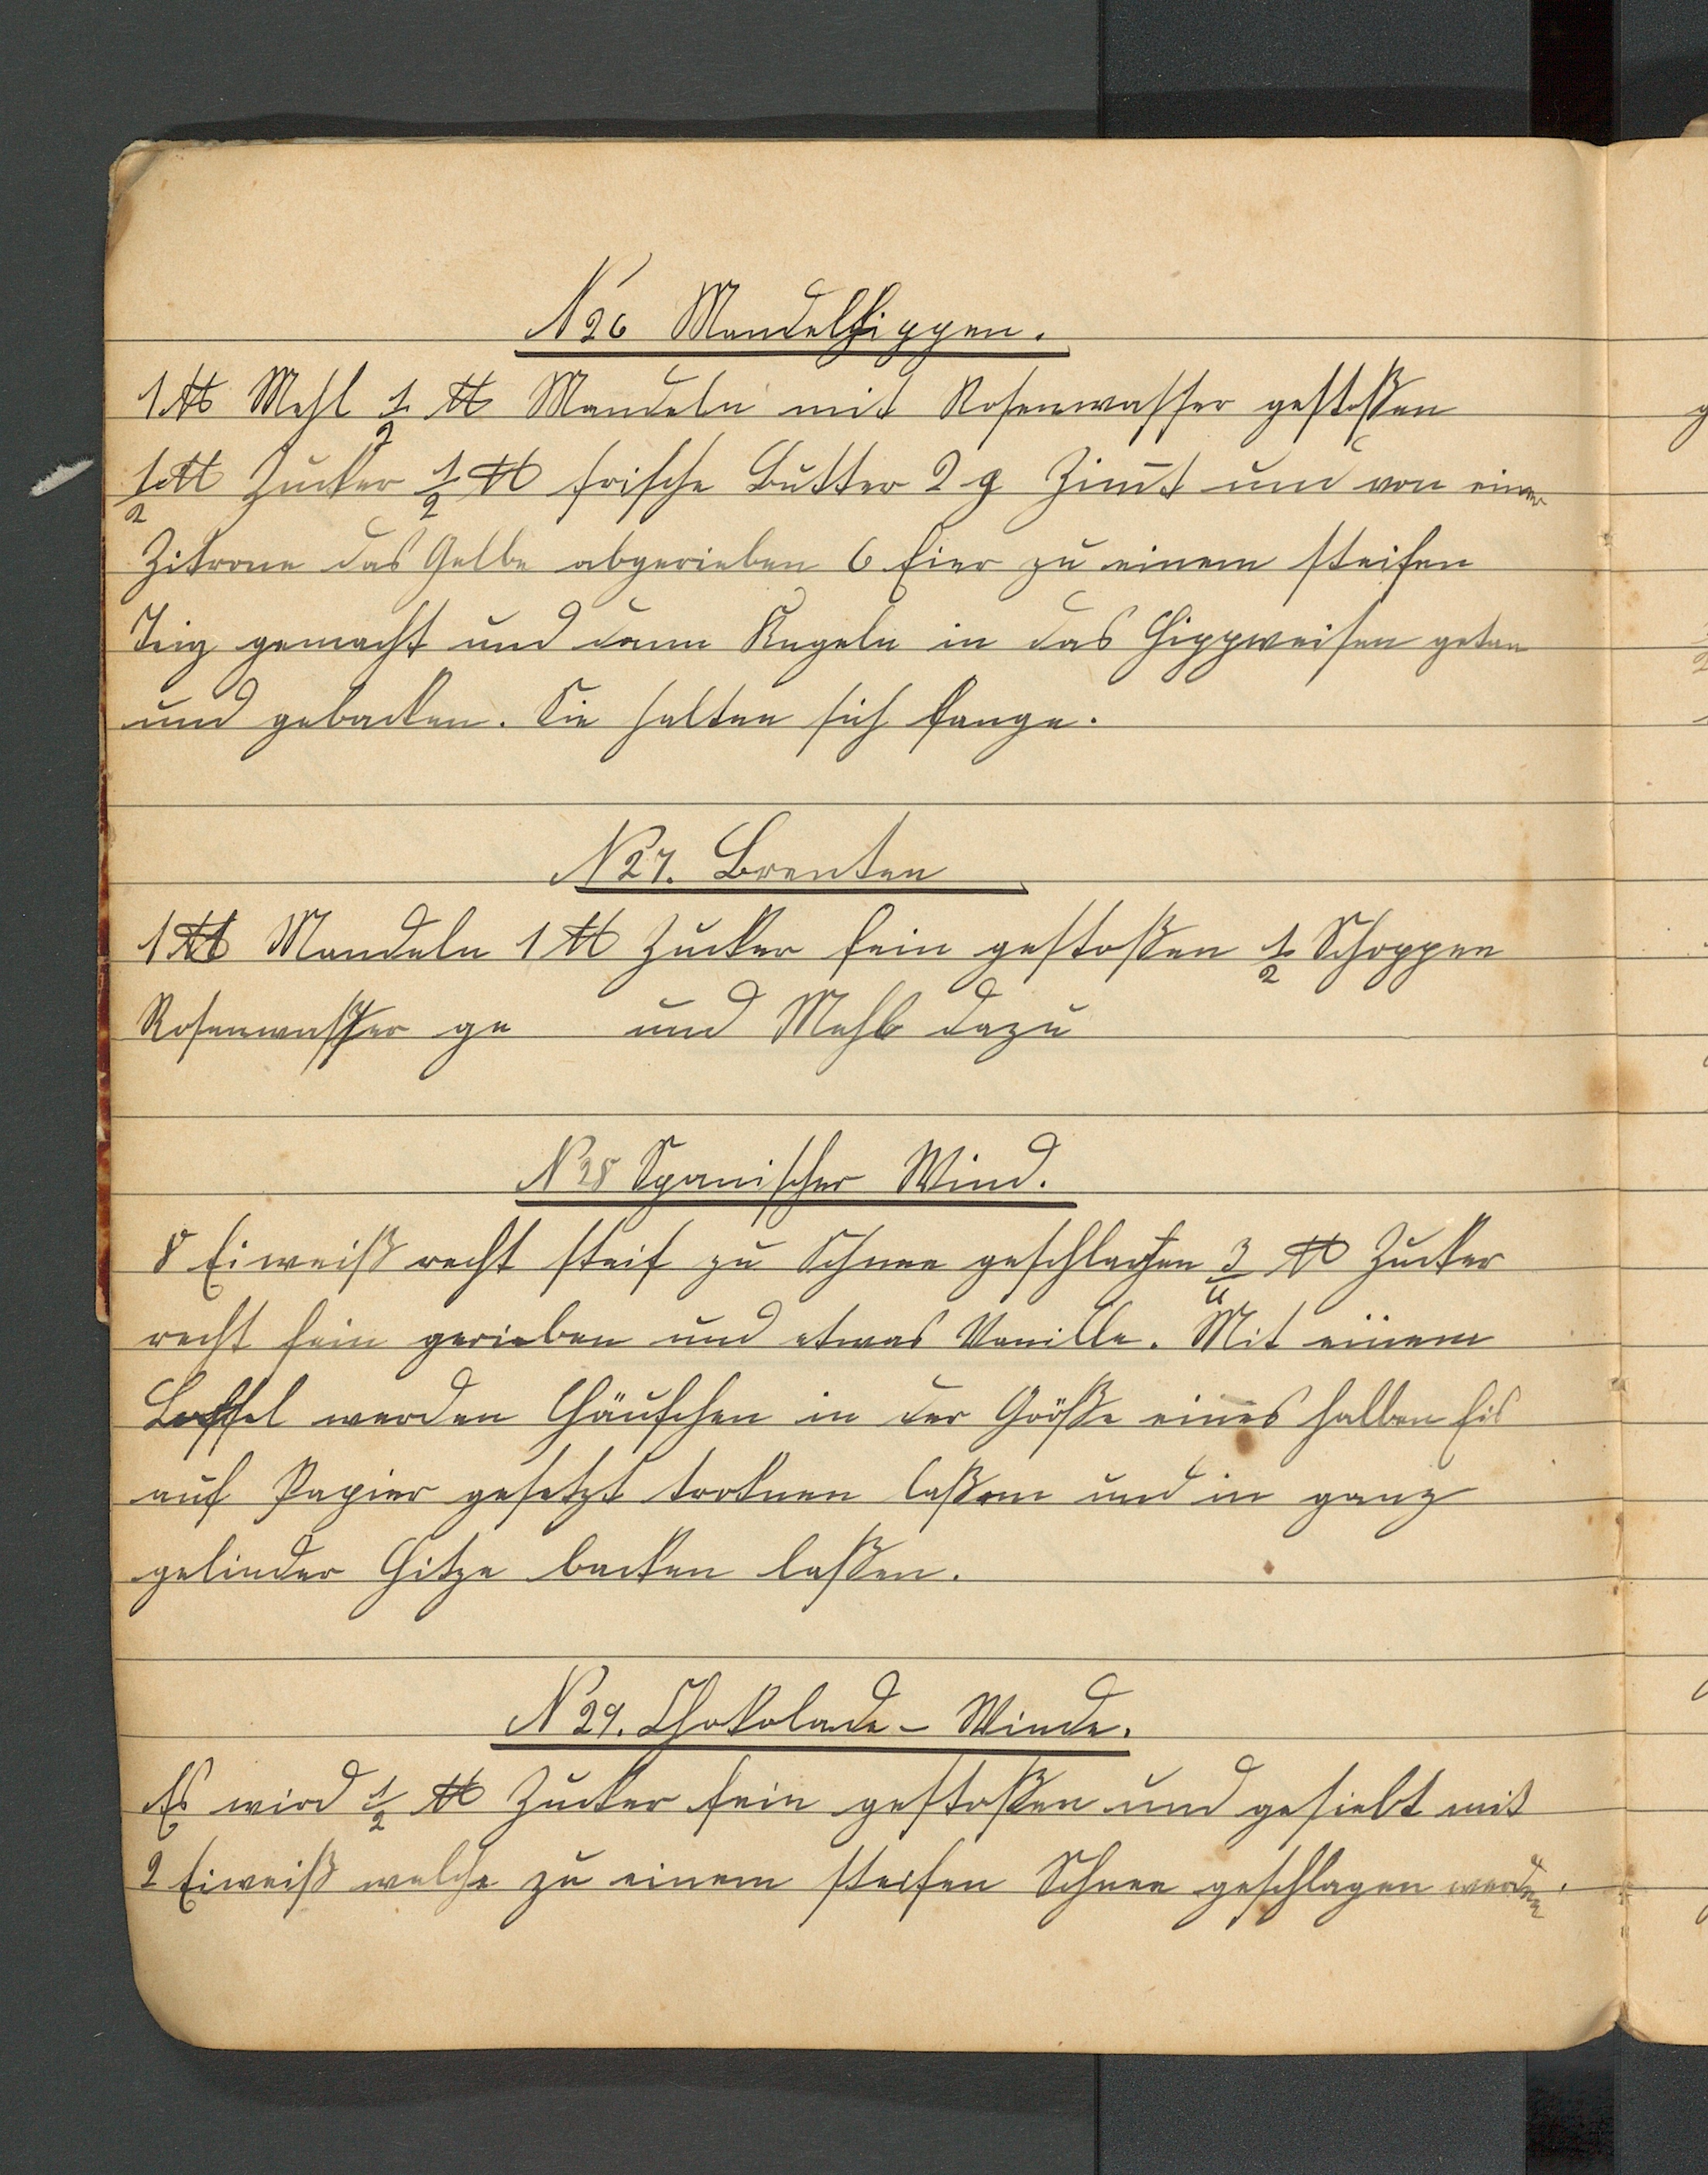 N 26 Mandelhippen.
1 ℔ Mehl 1/2 ℔ Mandeln mit Rosenwasser gestoßen
1/2 ℔ Zucker 1/2 ℔ frische Butter 2 g Zim̄t und von einer
Zitrone das Gelbe abgerieben 6 Eier zu einem steifen
Teig gemacht und dann Kugeln in das Hippeneisen getan
und gebacken. Sie halten sich lange.
N 27. Brenten
1 ℔ Mandeln 1 ℔ Zucker fein gestoßen 1/2 Schoppen
Rosenwasser ge und Mehl dazu
N 28 Spanischer Wind.
8 Eiweiß recht steif zu Schnee geschlagen 3/4 ℔ Zucker
recht fein gerieben und etwas Vanille. Mit einem
Löffel werden Häufchen in der Größe eines halben Eis
auf Papier gesetzt troknen laßen und in ganz
gelinder Hitze backen laßen.
N 29. Chokolade-Winde.
Es wird 1/2 ℔ Zucker fein gestoßen und gesiebt mit
2 Eiweiß welche zu einem steifen Schnee geschlagen werden.